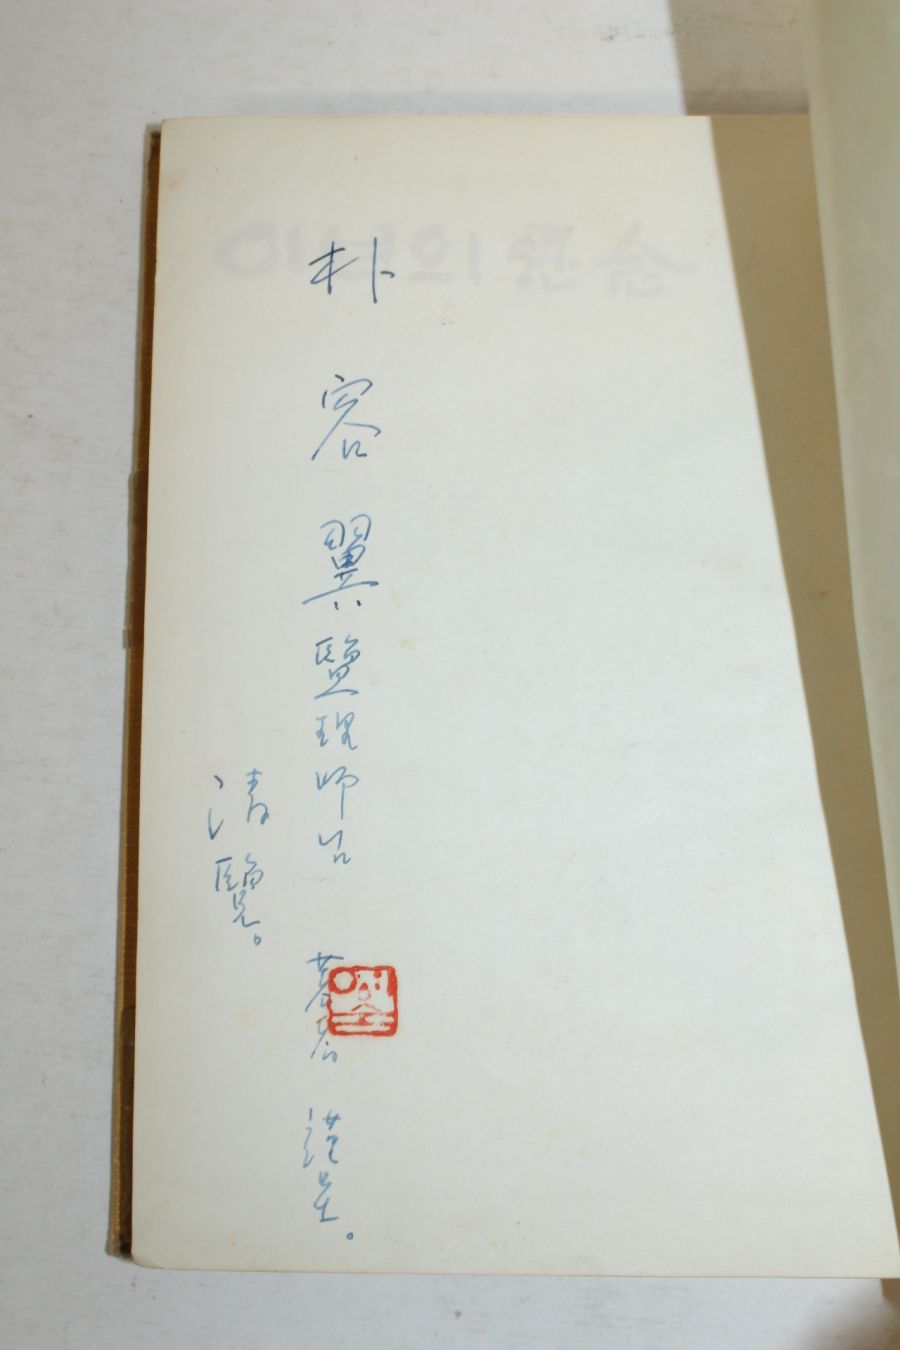 朴容翼監理師님
清覽。
謹呈。